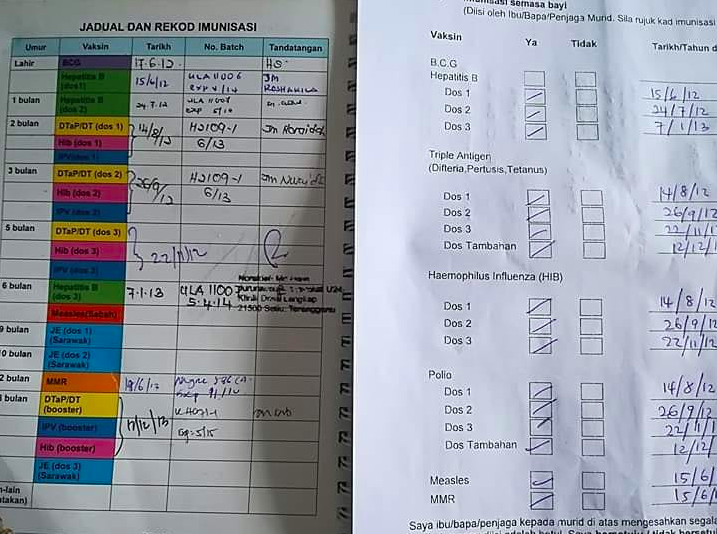 JADUAL DAN REKOD IMUNISASI
Umur Vaksin Tarikh No. Batch Tandatangan
Lahir BCG 17.6.12 HS
Hepatitis B (dos 1) 15/6/12 ULA 11006
exp 4/14
1 bulan Hepatitis B (dos 2) 24.7.12
2 bulan DTaP/DT (dos 1) 14/8/12 H2109-1
Hib (dos 1) 6/13
IPV (dos 1)
3 bulan DTaP/DT (dos 2) 26/9/12 H2109-1
Hib (dos 2) 6/13
IPV (dos 2)
5 bulan DTaP/DT (dos 3) 22/11/12
Hib (dos 3)
IPV (dos 3)
6 bulan Hepatitis B (dos 3) 7.1.13 ULA 1100
5.4.14
Klinik Desa Langkap
21500 Setiu, Terengganu
Measles (Sabah)
9 bulan JE (dos 1)
(Sarawak)
0 bulan JE (dos 2)
(Sarawak)
2 bulan MMR
bulan DTaP/DT
(booster)
IPV (booster)
Hib (booster) exp: 5/15
JE (dos 3)
(Sarawak)
n-lain
takan)
semasa bayi
(Diisi oleh Ibu/Bapa/Penjaga Murid. Sila rujuk kad imunisasi
Vaksin Ya Tidak Tarikh/Tahun d
B.C.G
Hepatitis B
Dos 1 15/6/12
Dos 2 24/7/12
Dos 3 7/1/13
Triple Antigen
(Difteria,Pertusis,Tetanus)
Dos 1 14/8/12
Dos 2 26/9/12
Dos 3 22/11/1
Dos Tambahan 12/12/1
Haemophilus Influenza (HIB)
Dos 1 14/8/12
Dos 2 26/9/12
Dos 3 22/11/12
Polio
Dos 1 14/8/12
Dos 2 26/9/12
Dos 3 22/11/1
Dos Tambahan 12/12/
Measles 15/6/
MMR 15/6/
Saya ibu/bapa/penjaga kepada murid di atas mengesahkan segala